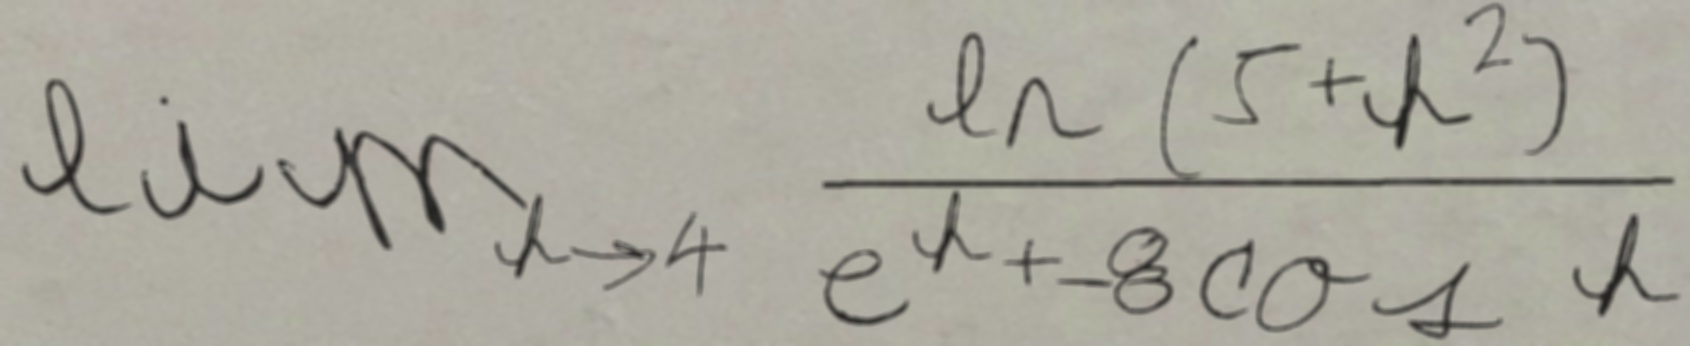 \lim_{h \to 4} \frac{\ln(5+h^2)}{e^h+-8\cos h}